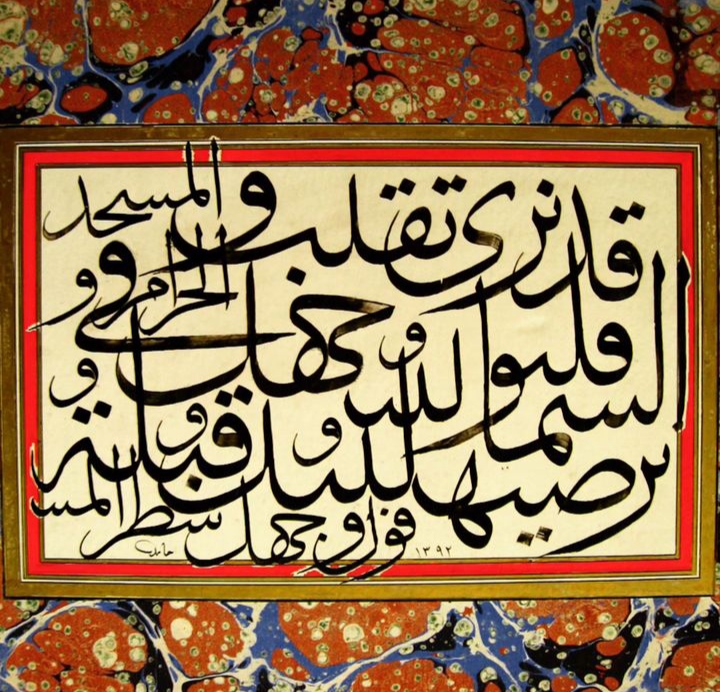 قد نرى تقلب و
جهك فى
السما فلنو لينك قبلة
ترضيها
فول وجهك شطر المسـ
المسجد
الحرام
حامد ١٣٩٢